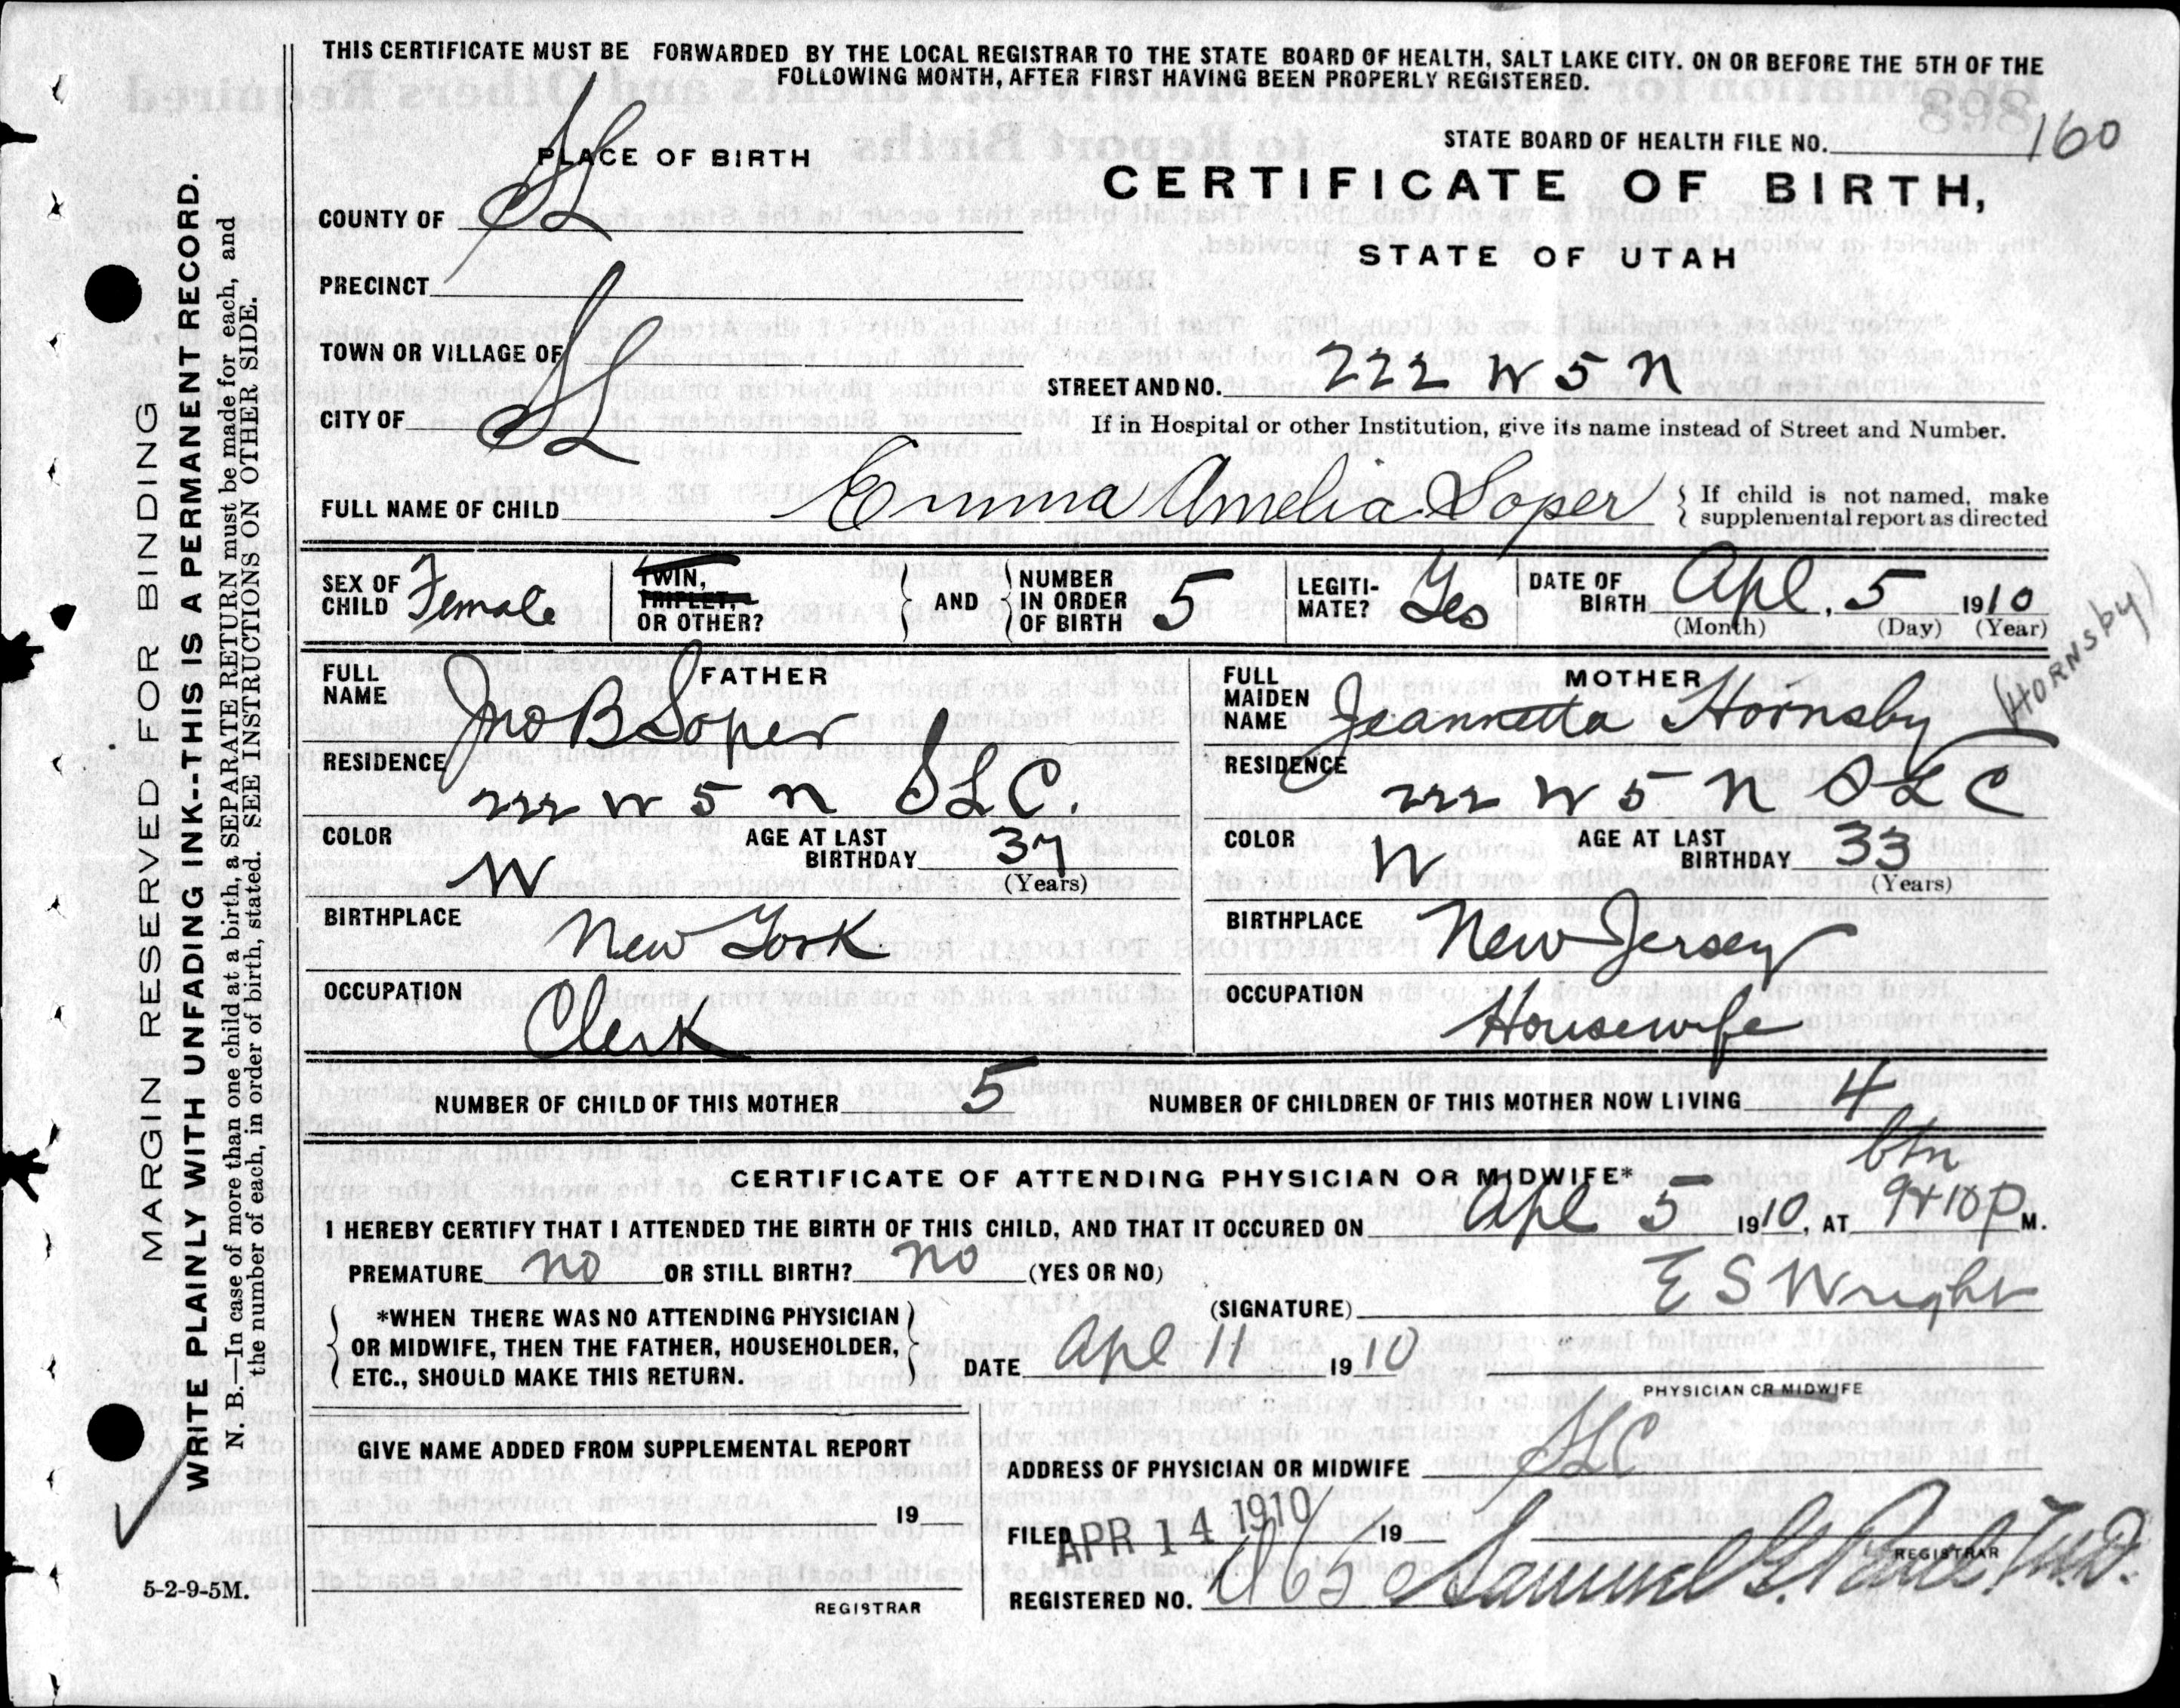 THIS CERTIFICATE MUST BE FORWARDED BY THE LOCAL REGISTRAR TO THE STATE BOARD OF HEALTH, SALT LAKE CITY, ON OR BEFORE THE 5TH OF THE
FOLLOWING MONTH, AFTER FIRST HAVING BEEN PROPERLY REGISTERED.
STATE BOARD OF HEALTH FILE NO. 160
PLACE OF BIRTH
CERTIFICATE OF BIRTH,
STATE OF UTAH
COUNTY OF SL
PRECINCT
TOWN OR VILLAGE OF
CITY OF SL
STREET AND NO. 222 W 5 N
If in Hospital or other Institution, give its name instead of Street and Number.
FULL NAME OF CHILD Emma Amelia Soper
If child is not named, make
supplemental report as directed
SEX OF CHILD Female
TWIN, TRIPLET, OR OTHER?
AND
NUMBER IN ORDER OF BIRTH 5
LEGITI-MATE? Yes
DATE OF BIRTH Apl. 5 1910
(Month) (Day) (Year)
FATHER
FULL NAME Jno B Soper
RESIDENCE 222 W 5 N SLC.
COLOR W
AGE AT LAST BIRTHDAY 37
(Years)
BIRTHPLACE New York
OCCUPATION Clerk
MOTHER
FULL MAIDEN NAME Jeannetta Hornsby
(HORNSby)
RESIDENCE 222 W 5 N SLC
COLOR W
AGE AT LAST BIRTHDAY 33
(Years)
BIRTHPLACE New Jersey
OCCUPATION Housewife
NUMBER OF CHILD OF THIS MOTHER 5
NUMBER OF CHILDREN OF THIS MOTHER NOW LIVING 4
CERTIFICATE OF ATTENDING PHYSICIAN OR MIDWIFE*
I HEREBY CERTIFY THAT I ATTENDED THE BIRTH OF THIS CHILD, AND THAT IT OCCURED ON Apl 5 1910, AT btn 9+10 P M.
PREMATURE no OR STILL BIRTH? no (YES OR NO)
*WHEN THERE WAS NO ATTENDING PHYSICIAN
OR MIDWIFE, THEN THE FATHER, HOUSEHOLDER,
ETC., SHOULD MAKE THIS RETURN.
(SIGNATURE) E S Wright
DATE Apl 11 1910
PHYSICIAN OR MIDWIFE
GIVE NAME ADDED FROM SUPPLEMENTAL REPORT
19
REGISTRAR
ADDRESS OF PHYSICIAN OR MIDWIFE SLC
FILED APR 14 1910 19
REGISTRAR
REGISTERED NO.
Samuel G. Paul, M.D.
5-2-9-5M.
MARGIN RESERVED FOR BINDING
WRITE PLAINLY WITH UNFADING INK--THIS IS A PERMANENT RECORD.
N. B.—In case of more than one child at a birth, a SEPARATE RETURN must be made for each, and
the number of each, in order of birth, stated. SEE INSTRUCTIONS ON OTHER SIDE.